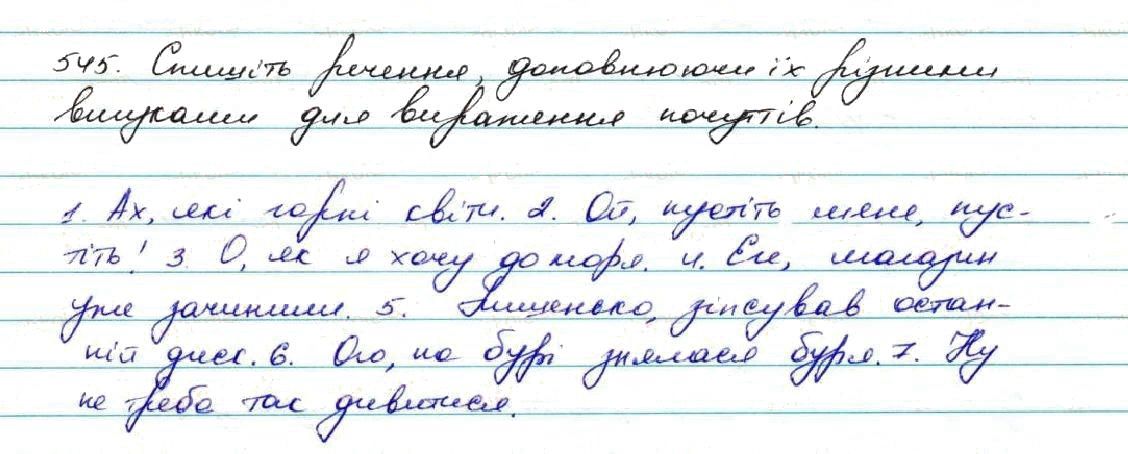 545. Спишіть речення, доповнюючи їх різними
вигуками для вираження почуттів.
1. Ах, які гарні квіти. 2. Ой, пустіть мене, пус-
тіть! 3. О, як я хочу до моря. 4. Ех, магазин
уже зачинили. 5. зіпсував остан-
ній диск. 6. Ого, на бурі знялася буря. 7. Ну
не треба так дивитися.